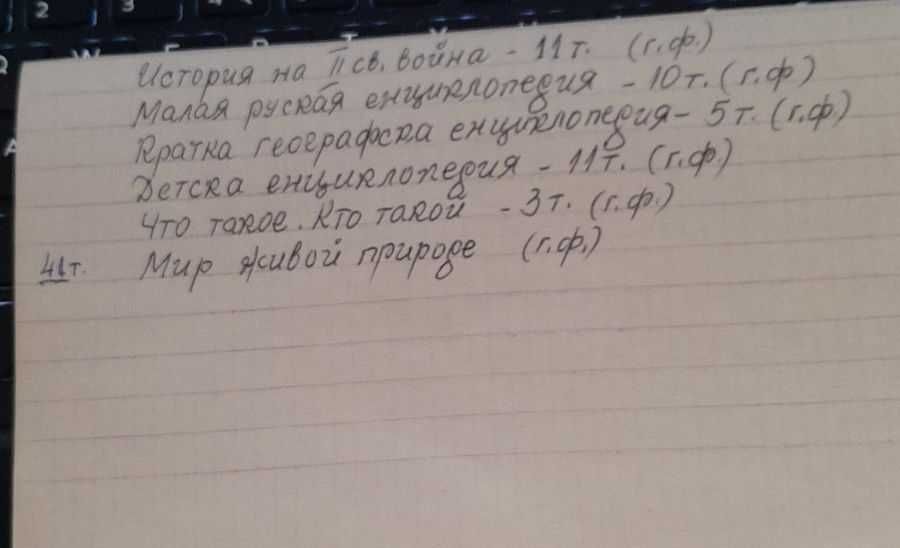 История на II св. война - 11 т. (г.ф.)
Малая руская енциклопедия - 10 т. (г.ф)
Кратка географска енциклопедия - 5 т. (г.ф.)
Детска енциклопедия - 11 т. (г.ф.)
Что такое. Кто такой - 3 т. (г.ф.)
41 т. Мир живой природе (г.ф.)